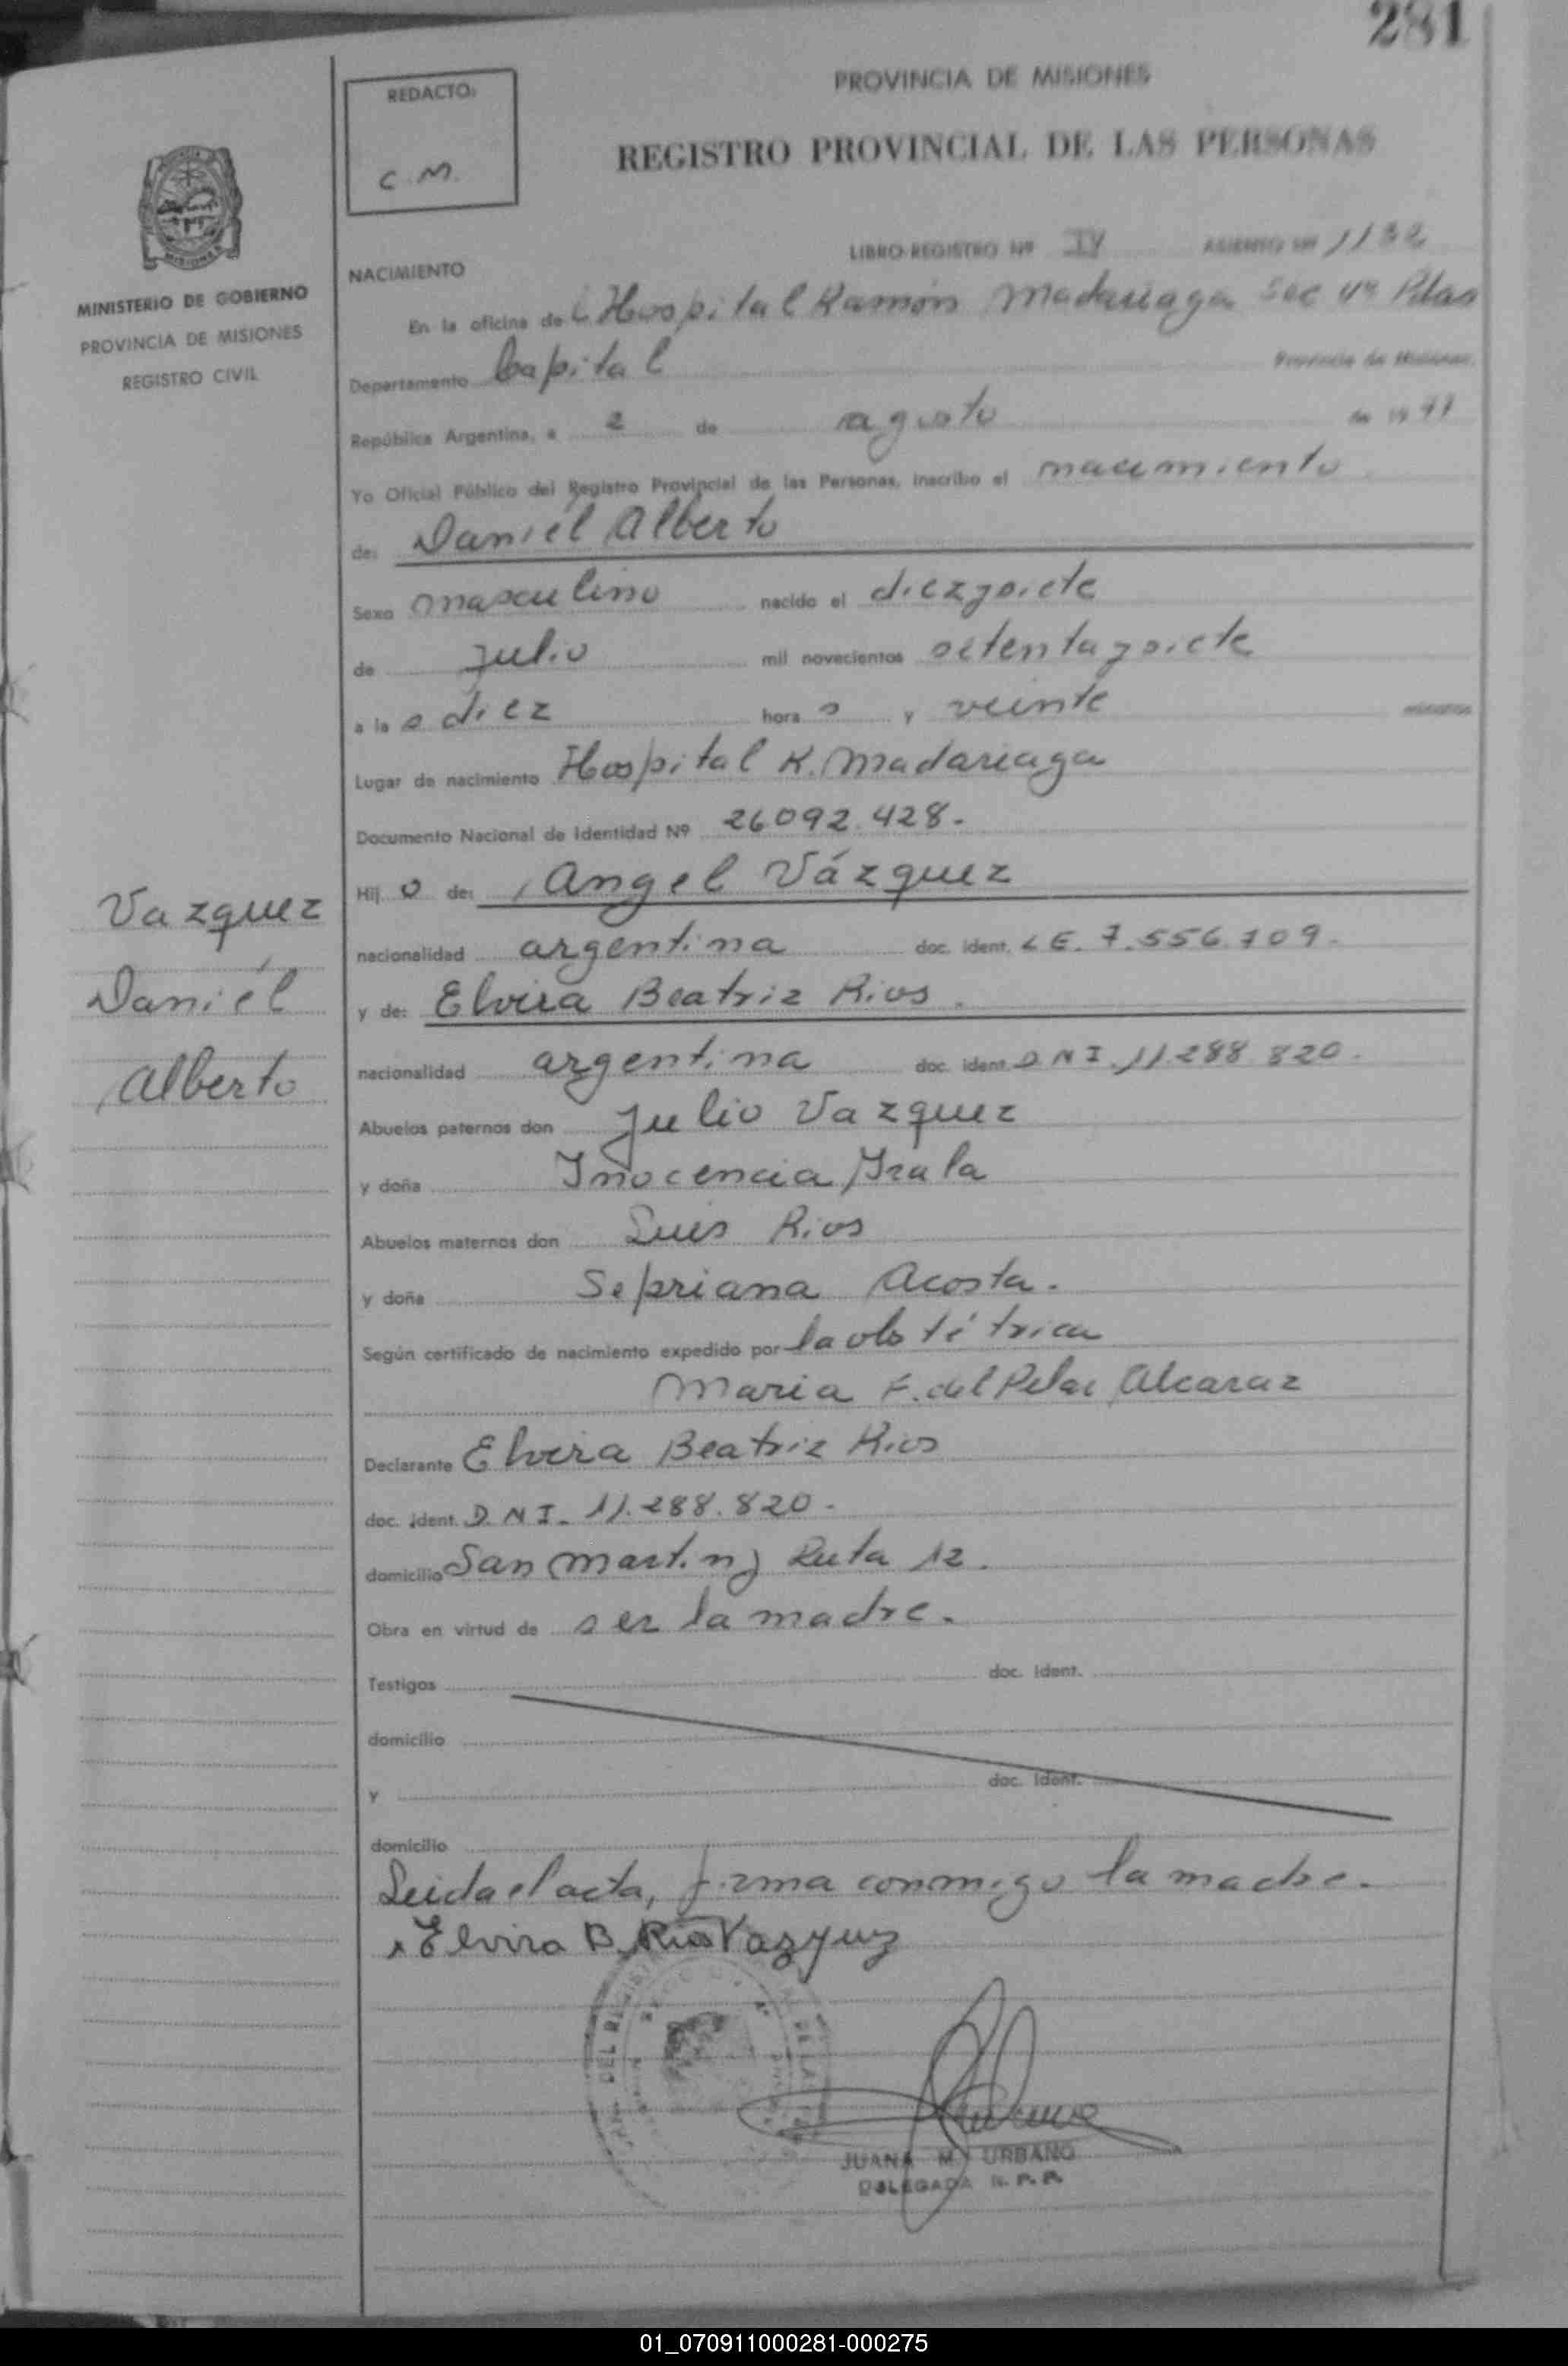 281
PROVINCIA DE MISIONES
REDACTO:
C.M.
REGISTRO PROVINCIAL DE LAS PERSONAS
LIBRO-REGISTRO Nº IV
NACIMIENTO
MINISTERIO DE GOBIERNO
PROVINCIA DE MISIONES
REGISTRO CIVIL
En la oficina de Hospital Ramón Madariaga Sec
Departamento Capital Provincia de Misiones,
República Argentina, a 2 de agosto de 1977
Yo Oficial Público del Registro Provincial de las Personas, inscribo el nacimiento
de: Daniél Alberto
Sexo masculino nacido el diezysiete
de julio mil novecientos setentaysiete
a la s diez hora s y veinte minutos
Lugar de nacimiento Hospital R. Madariaga
Documento Nacional de Identidad Nº 26092.428.-
Hij o de: Angel Vázquez
Vazquez
Daniél
Alberto
nacionalidad argentina doc. ident. L E. 7.556.709.-
y de: Elvira Beatriz Rios.
nacionalidad argentina doc. ident. D N I. 11.288.820.-
Abuelos paternos don Julio Vazquez
y doña Inocencia Irala
Abuelos maternos don Luis Rios
y doña Sepriana Acosta.
Según certificado de nacimiento expedido por la obstétrica
Maria F. del Pilar Alcaraz
Declarante Elvira Beatriz Rios
doc. ident. D. N I. 11.288.820.-
domicilio San Martin y Ruta 12.
Obra en virtud de ser la madre.
Testigos doc. ident.
domicilio
y doc. ident.
domicilio
Leida el acta, firma conmigo la madre.
Elvira B. Rios Vazquez
JUANA M. URBANO
DELEGADA R. P. P.
01_070911000281-000275